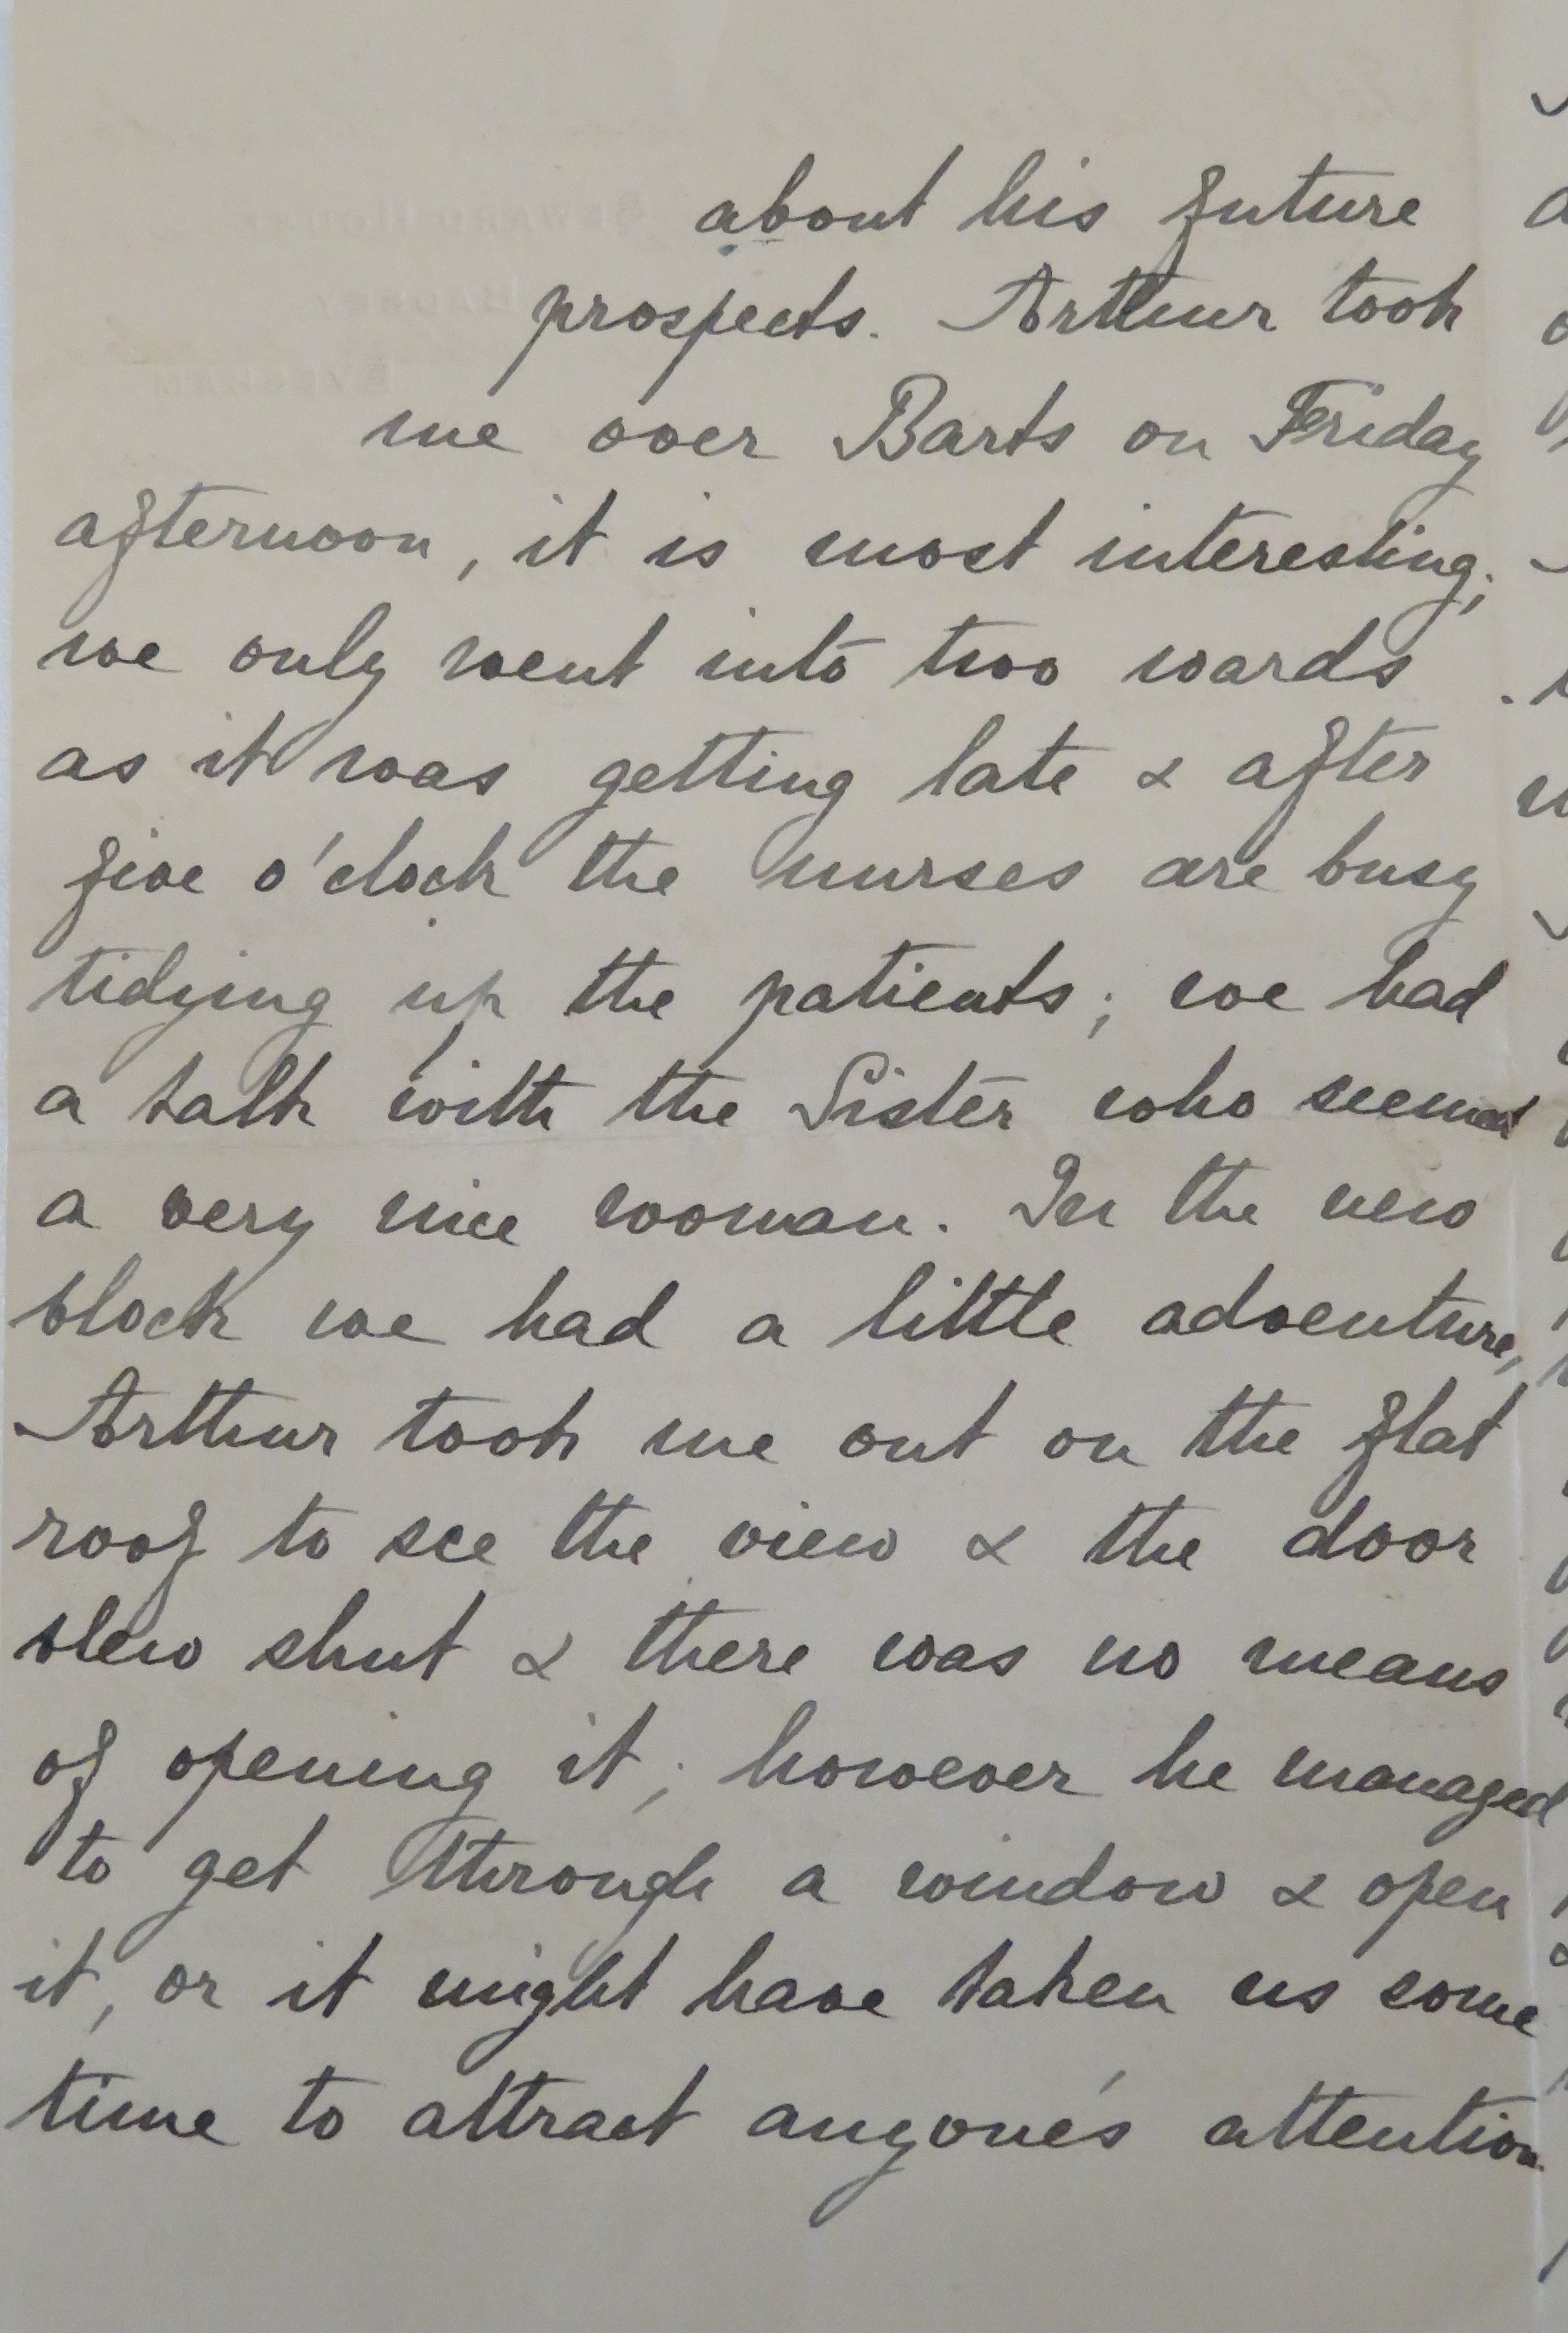 about his future
prospects. Arthur took
me over Barts on Friday
afternoon, it is most interesting;
we only went into two wards
as it was getting late & after
five o'clock the nurses are busy
tidying up the patients; we had
a talk with the Sister who seemed
a very nice woman. In the new
block we had a little adventure,
Arthur took me out on the flat
roof to see the view & the door
blew shut & there was no means
of opening it; however he managed
to get through a window & open
it, or it might have taken us some
time to attract anyone's attention.